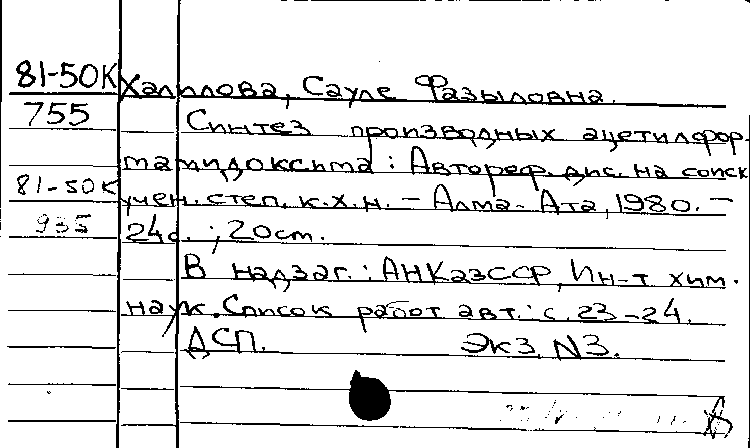 81-50К Халилова, Сауле Фазыловна.
755 Синтез производных ацетилфор-
мамидоксима : Автореф. дис. на соиск
81-50К учен. степ. к.х.н. - Алма-Ата, 1980. -
935 24с. ; 20см.
В надзаг. : АНКазССР, Ин-т хим.
наук. Список работ авт. : с. 23-24.
ДСП. Экз. N3.